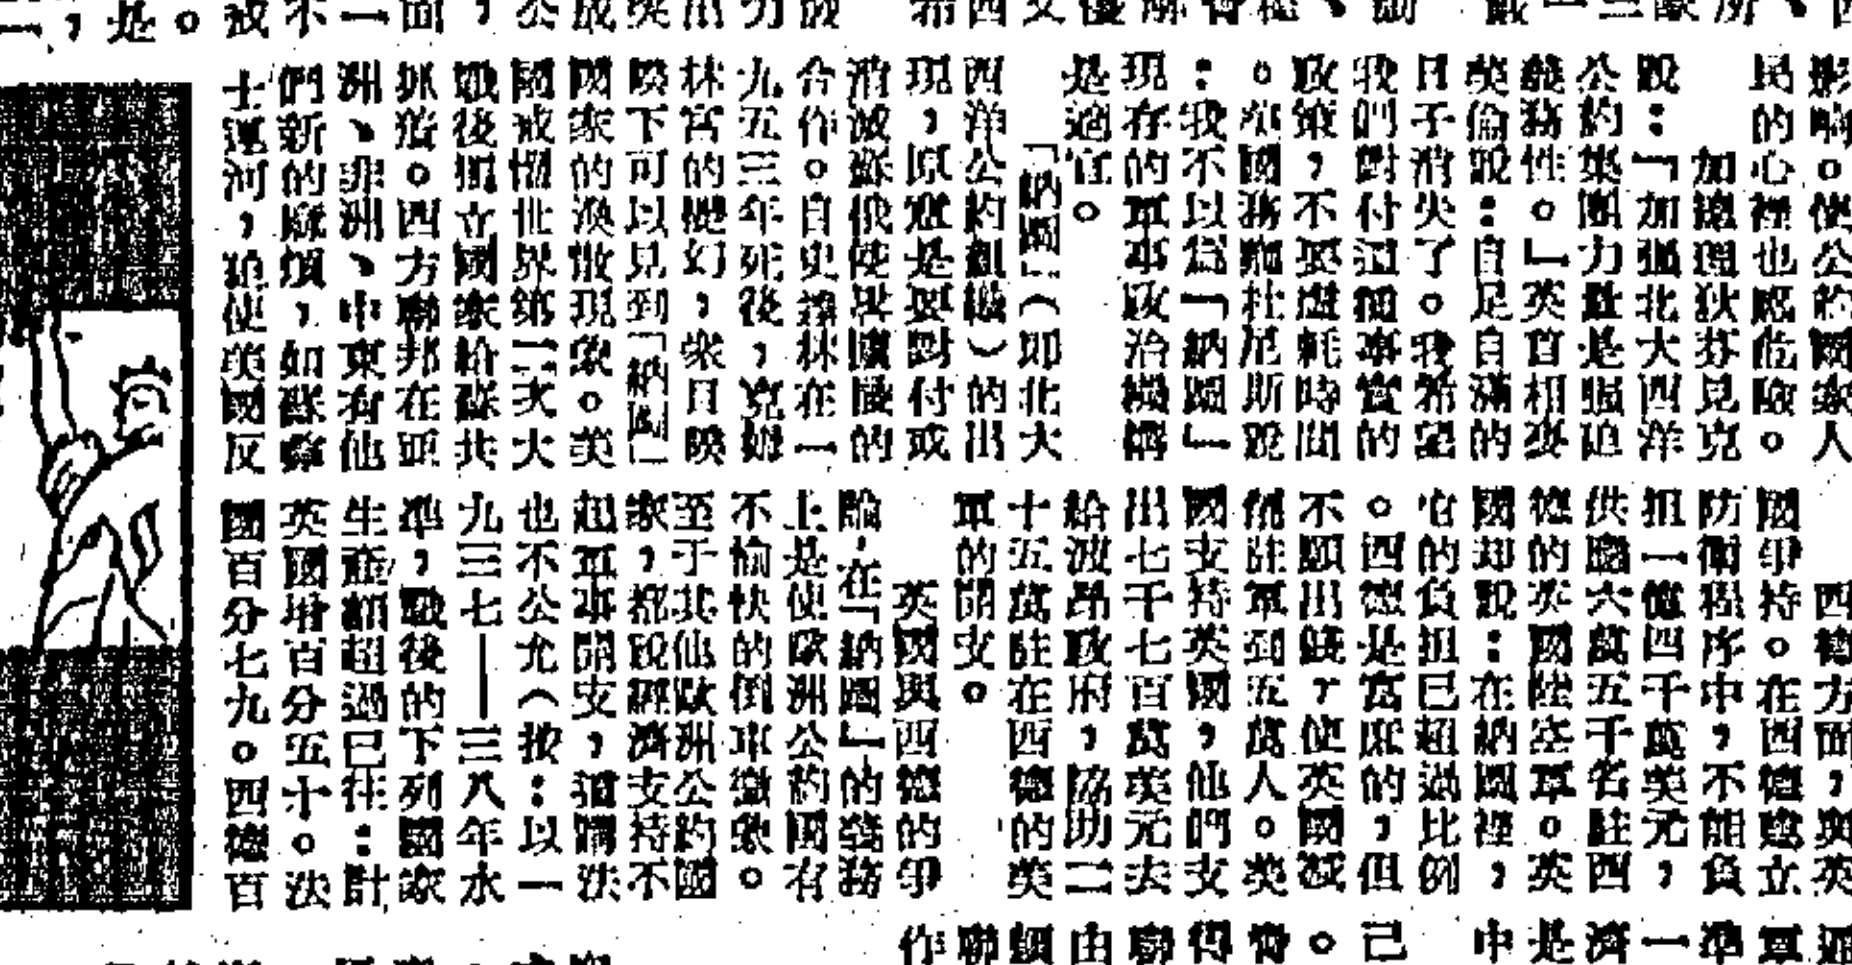 影响。使公約國家人
民的心裡也感危險。
加總理狄芬見克
說：「加強北大西洋
公約集團力量是強迫
義務性。」英首相麥
美倫說：自足自滿的
日子消失了。我希望
我們對付這個事實的
政策，不要虛耗時間
。美國務卿杜尼斯說
：我不以為「納圖」
現存的軍事政治機構
是適宜。
「納圖」（即北大
西洋公約組織）的出
現，原意是要對付或
消滅蘇俄使其擴展的
合作。自史達林在一
九五三年死後，克姆
林宮的變幻，衆目睽
睽下可以見到「納圖」
國家的渙散現象。美
國戒懼世界第二次大
戰後獨立國家給蘇共
抓着。西方聯邦在亞
洲、非洲、中東有他
們新的麻煩，如蘇彝
士運河，迫使美國反
西德方面，與英
國爭持。在西德建立
防衛程序中，不能負
担一億四千萬美元，
供應六萬五千名駐西
德的英國陸空軍。英
國却說：在納圖裡，
它的負担已超過比例
。西德是富庶的，但
不願出錢，使英國減
削駐軍到五萬人。美
國支持英國，他們支
出七千七百萬美元去
給波昂政府，協助二
十五萬駐在西德的美
軍的開支。
英國與西德的爭
論，在「納圖」的義務
上是使歐洲公約國有
不愉快的倒車徵象。
至于其他歐洲公約國
家，都說經濟支持不
起軍事開支，這謂法
也不公允（按：以一
九三七——三八年水
準，戰後的下列國家
生產額超過已往：計
英國增百分五十。法
國百分七九。西德百